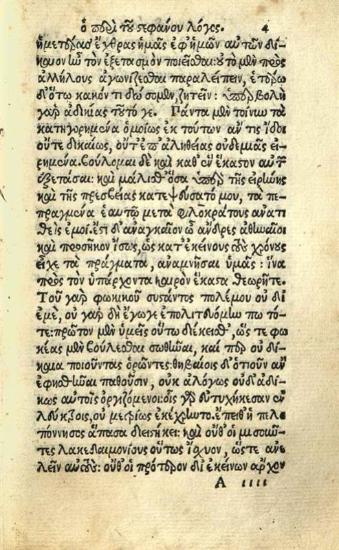 ὁ περὶ τοῦ στεφάνου λόγος. 4
ἡμετέρας ἔχθρας ἡμᾶς ἐφ' ἡμῶν αὐτῶν δί-
καιον ἦν τὸν ἐξετασμὸν ποιεῖσθαι: οὐ τὸ μὲν πρὸς
ἀλλήλους ἀγωνίζεσθαι παραλείπειν, ἑτέρῳ
δ' ὅτῳ κακόν τι δώσομεν, ζητεῖν: ὑπερβολὴ
γὰρ ἀδικίας τοῦτό γε. Πάντα μὲν τοίνυν τὰ
κατηγορημένα ὁμοίως ἐκ τούτων ἄν τις ἴδοι
οὔτε δικαίως, οὔτ' ἐπ' ἀληθείας οὐδεμιᾶς εἰ-
ρημένα. βούλομαι δὲ καὶ καθ' ἓν ἕκαστον αὐτὰ
ἐξετάσαι: καὶ μάλισθ' ὅσα ὑπὲρ τῆς εἰρήνης
καὶ τῆς πρεσβείας κατεψεύσατό μου, τὰ πε-
πραγμένα ἑαυτῷ μετὰ Φιλοκράτους ἀνατι-
θεὶς ἐμοί. ἔστι δ' ἀναγκαῖον ὦ ἄνδρες ἀθηναῖοι
καὶ προσῆκον ἴσως, ὡς κατ' ἐκείνους τοὺς χρόνους
εἶχε τὰ πράγματα, ἀναμνῆσαι ὑμᾶς: ἵνα
πρὸς τὸν ὑπάρχοντα καιρὸν ἕκαστα θεωρῆτε.
Τοῦ γὰρ φωκικοῦ συστάντος πολέμου οὐ δι'
ἐμὲ, οὐ γὰρ δὴ ἔγωγε ἐπολιτευόμην πω τό-
τε: πρῶτον μὲν ὑμεῖς οὕτω διέκεισθ', ὥστε φω-
κέας μὲν βούλεσθαι σωθῆναι, καίπερ οὐ δί-
καια ποιοῦντας ὁρῶντες: θηβαίοις δ' ὁτιοῦν ἂν
ἐφησθῆναι παθοῦσιν, οὐκ ἀλόγως οὐδ' ἀδί-
κως αὐτοῖς ὀργιζόμενοι: οἷς γὰρ εὐτυχήκεσαν ἐν
λεύκτροις, οὐ μετρίως ἐκέχρηντο. ἔπειθ' ἡ πελο-
πόννησος ἅπασα διειστήκει: καὶ οὔθ' οἱ μισοῦντες
λακεδαιμονίους οὕτως ἴσχυον, ὥστε ἀνε-
λεῖν αὐτούς: οὔθ' οἱ πρότερον δι' ἐκείνων ἄρχον
A IIII